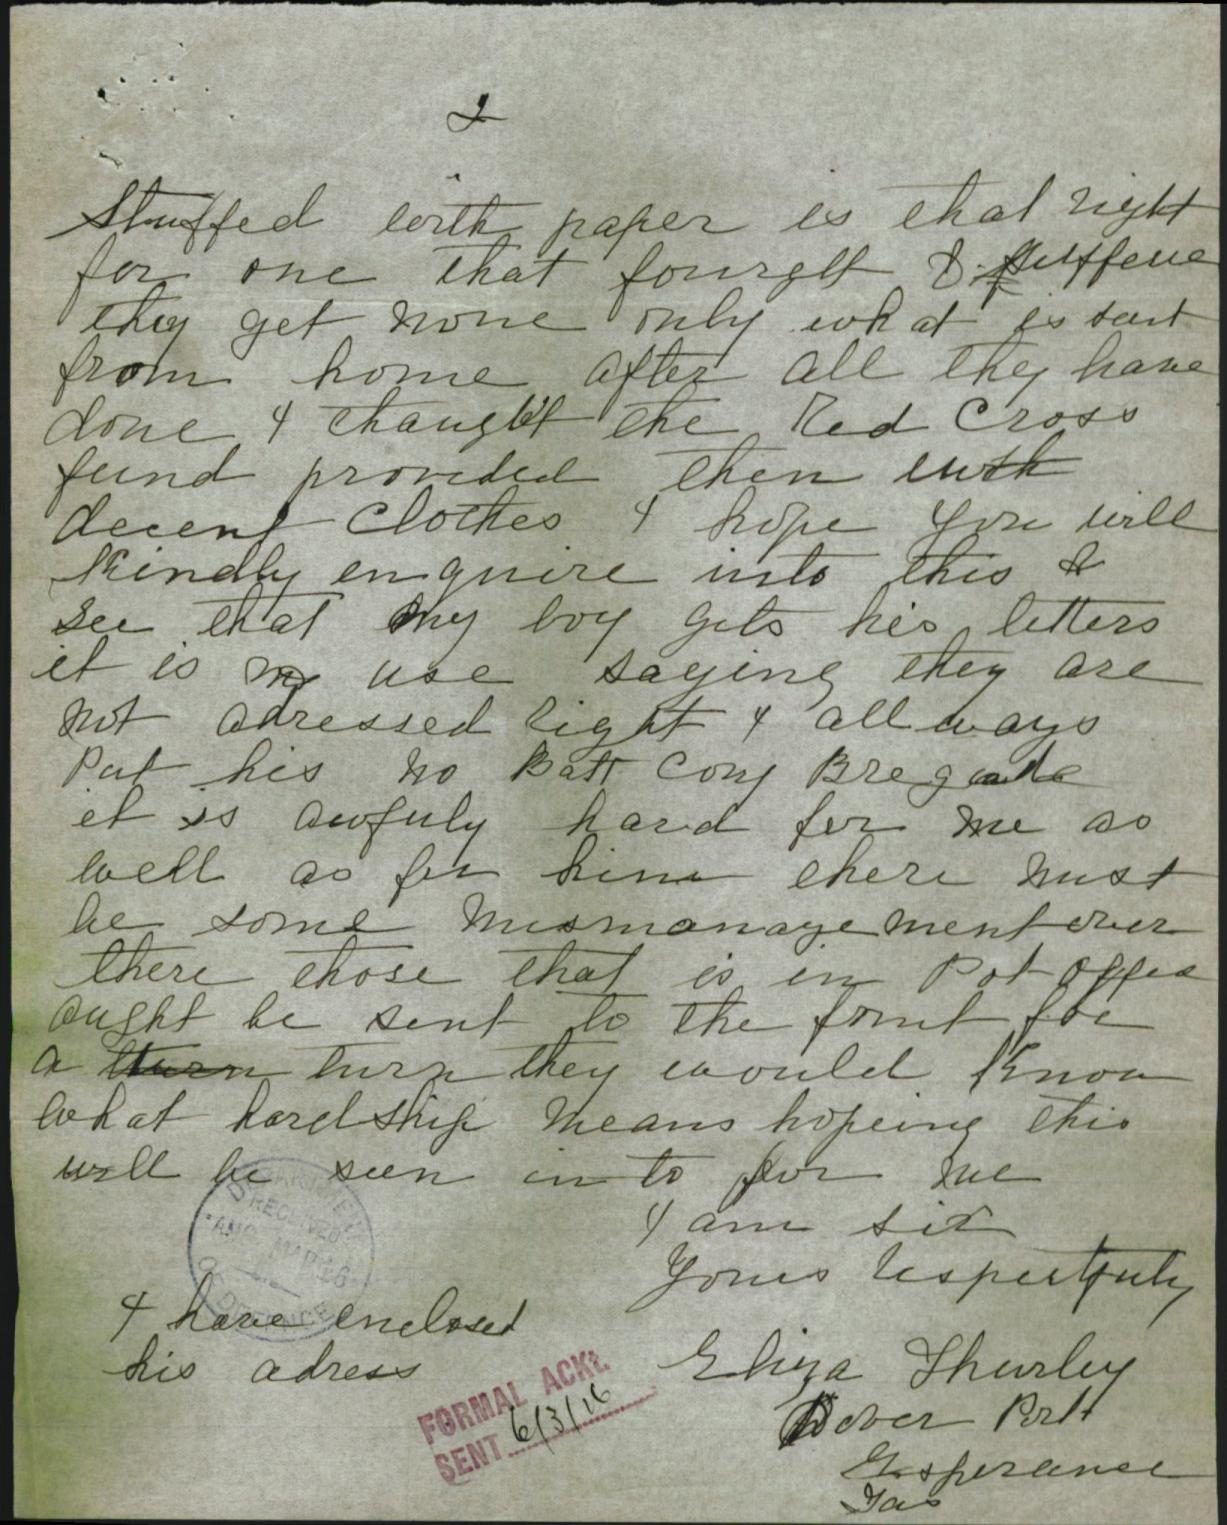 2
Stuffed with paper is that right
for one that fourght &
they get none only what is sent
from home after all they have
done I thaught the Red Cross
fund provided them with
decent Clothes I hope you will
Kindly enquire into this &
see that my boy gets his letters
it is no use saying they are
not adressed right I allways
Put his No Batt Coy Bregade
it is awfuly hard for me as
well as for him there must
be some mismanagement over
there those that is in Pot Offes
ought be sent to the front for
a turn turn they would Know
what hardship means hopeing this
will be seen in to for me
I am sir
Yours respectfuly
I have enclosed
his adress
Eliza Thurley
Dover Port
Esperance
Tas
DEPARTMENT
RECEIVED
MAR 16
OF DEFENCE
FORMAL ACKT.
SENT 6/3/16